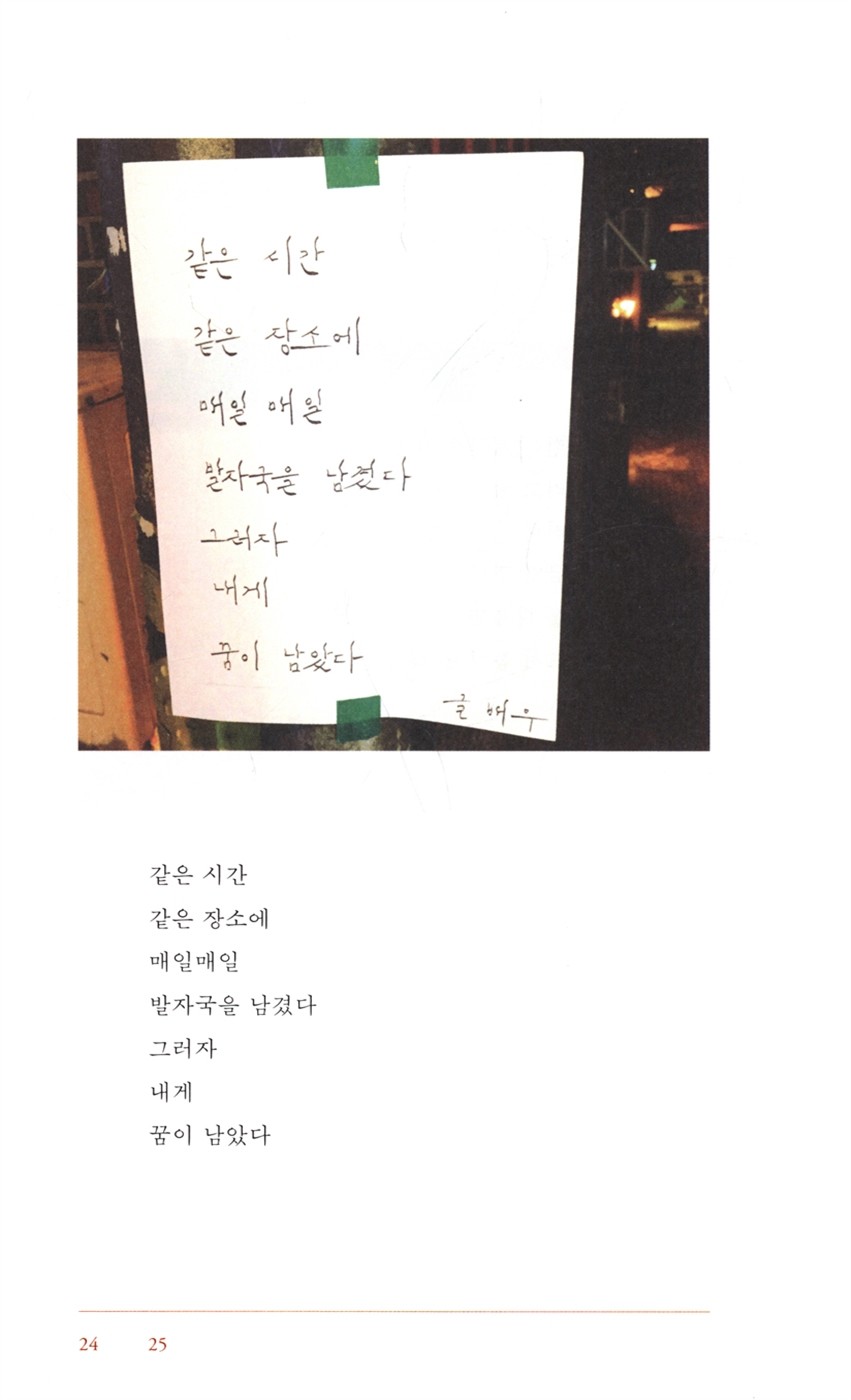 같은 시간
같은 장소에
매일 매일
발자국을 남겼다
그러자
내게
꿈이 남았다
글 배우
같은 시간
같은 장소에
매일매일
발자국을 남겼다
그러자
내게
꿈이 남았다
24 25